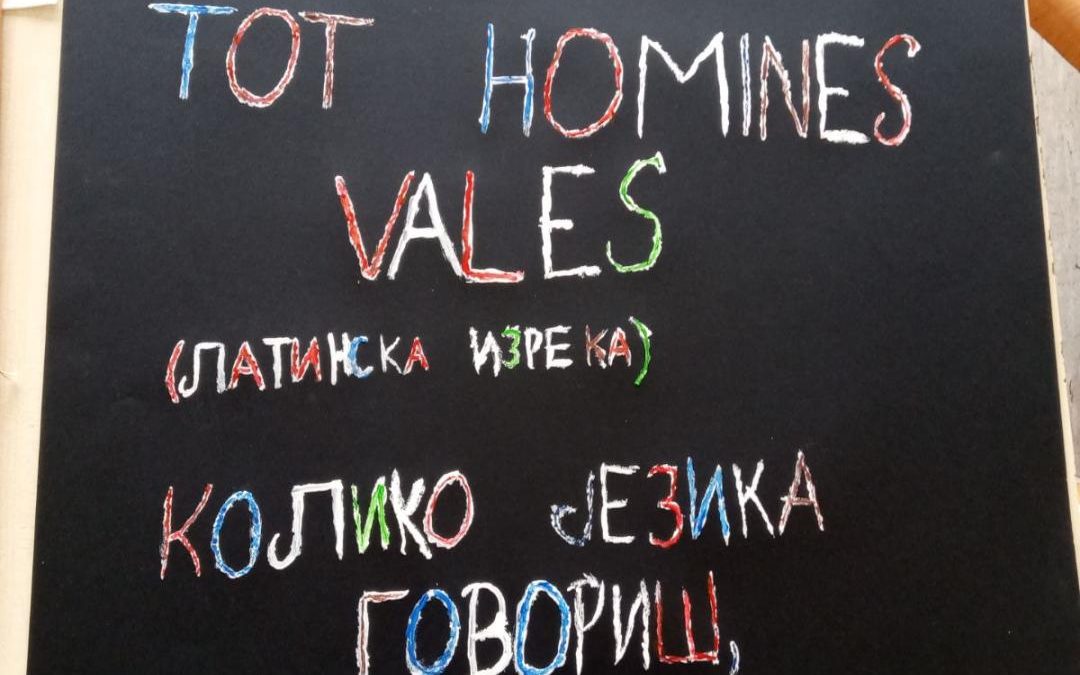 TOT HOMINES
VALES
(ЛАТИНСКА ИЗРЕКА)
КОЛИКО ЈЕЗИКА
ГОВОРИШ,